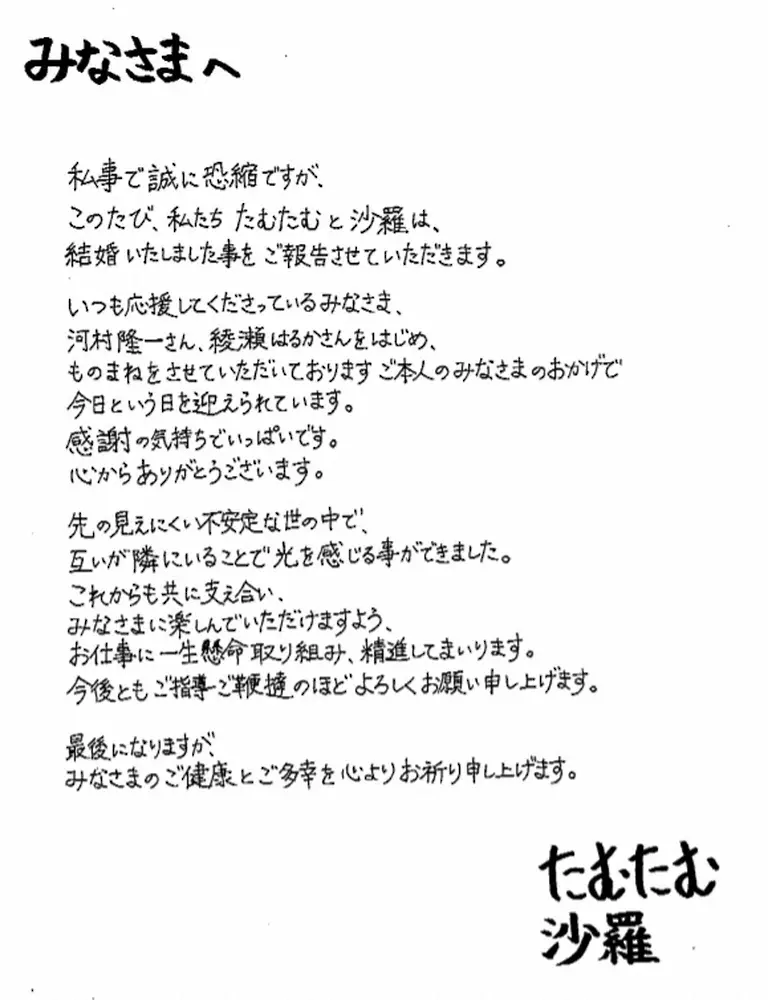 みなさまへ
私事で誠に恐縮ですが、
このたび、私たち たむたむと沙羅は、
結婚いたしました事をご報告させていただきます。
いつも応援してくださっているみなさま、
河村隆一さん、綾瀬はるかさんをはじめ、
ものまねをさせていただいておりますご本人のみなさまのおかげで
今日という日を迎えられています。
感謝の気持ちでいっぱいです。
心からありがとうございます。
先の見えにくい不安定な世の中で、
互いが隣にいることで光を感じる事ができました。
これからも共に支え合い、
みなさまに楽しんでいただけますよう、
お仕事に一生懸命取り組み、精進してまいります。
今後ともご指導ご鞭撻のほどよろしくお願い申し上げます。
最後になりますが、
みなさまのご健康とご多幸を心よりお祈り申し上げます。
たむたむ
沙羅